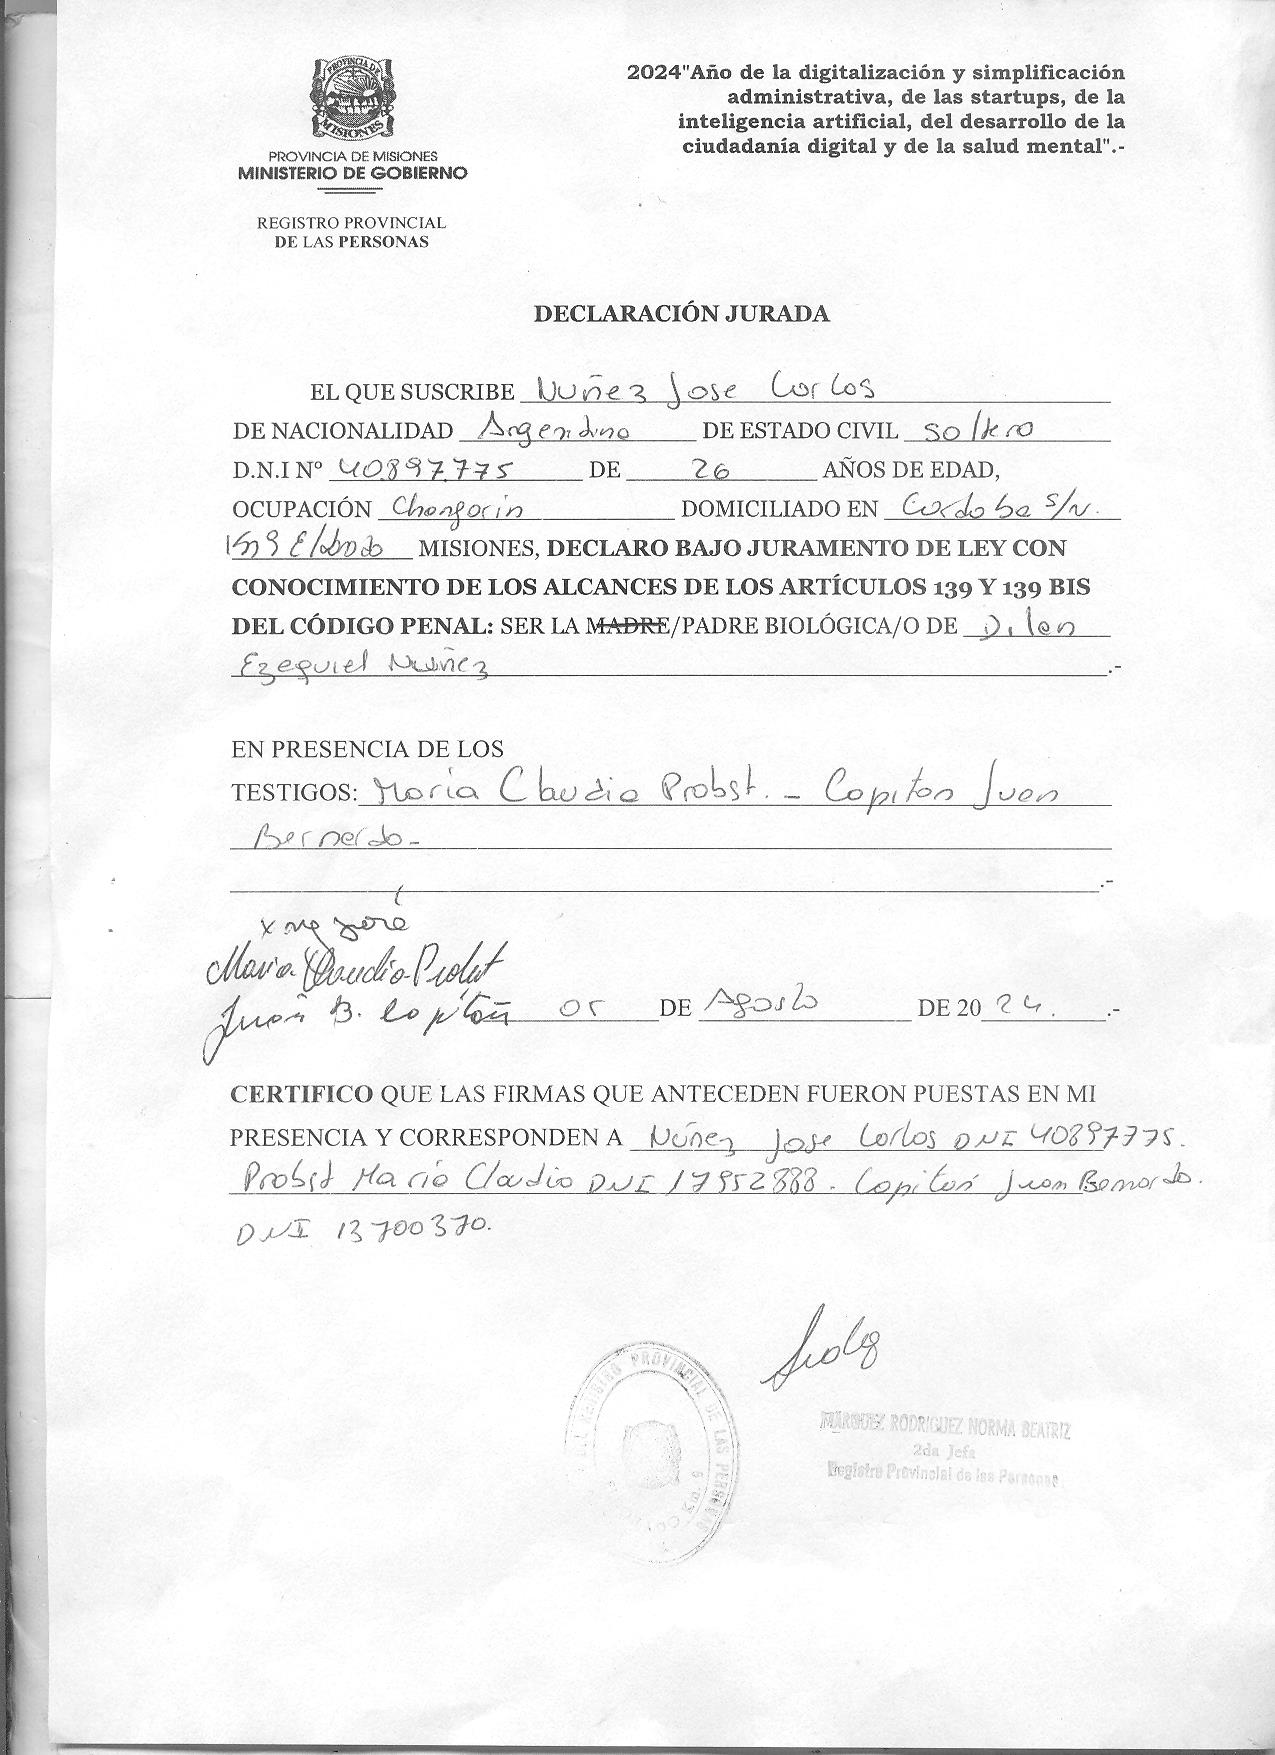 PROVINCIA DE
MISIONES
PROVINCIA DE MISIONES
MINISTERIO DE GOBIERNO
REGISTRO PROVINCIAL
DE LAS PERSONAS
2024"Año de la digitalización y simplificación
administrativa, de las startups, de la
inteligencia artificial, del desarrollo de la
ciudadanía digital y de la salud mental".-
DECLARACIÓN JURADA
EL QUE SUSCRIBE Nuñez Jose Carlos
DE NACIONALIDAD Argentino DE ESTADO CIVIL soltero
D.N.I Nº 40897775 DE 26 AÑOS DE EDAD,
OCUPACIÓN Changarin DOMICILIADO EN Cordoba s/n.
Km9 Eldorado MISIONES, DECLARO BAJO JURAMENTO DE LEY CON
CONOCIMIENTO DE LOS ALCANCES DE LOS ARTÍCULOS 139 Y 139 BIS
DEL CÓDIGO PENAL: SER LA MADRE/PADRE BIOLÓGICA/O DE Dilan
Ezequiel Nuñez .-
EN PRESENCIA DE LOS
TESTIGOS: Maria Claudia Probst. - Capiton Juan
Bernardo-
.-
Maria Claudia Probst
Juan B. Capitón 05 DE Agosto DE 2024. .-
CERTIFICO QUE LAS FIRMAS QUE ANTECEDEN FUERON PUESTAS EN MI
PRESENCIA Y CORRESPONDEN A Núñez Jose Carlos DNI 40897775.
Probst Maria Claudia DNI 17952888. Capiton Juan Bernardo.
DNI 13700370.
REGISTRO PROVINCIAL DE LAS PERSONAS
MARQUEZ RODRIGUEZ NORMA BEATRIZ
2da Jefa
Registro Provincial de las Personas